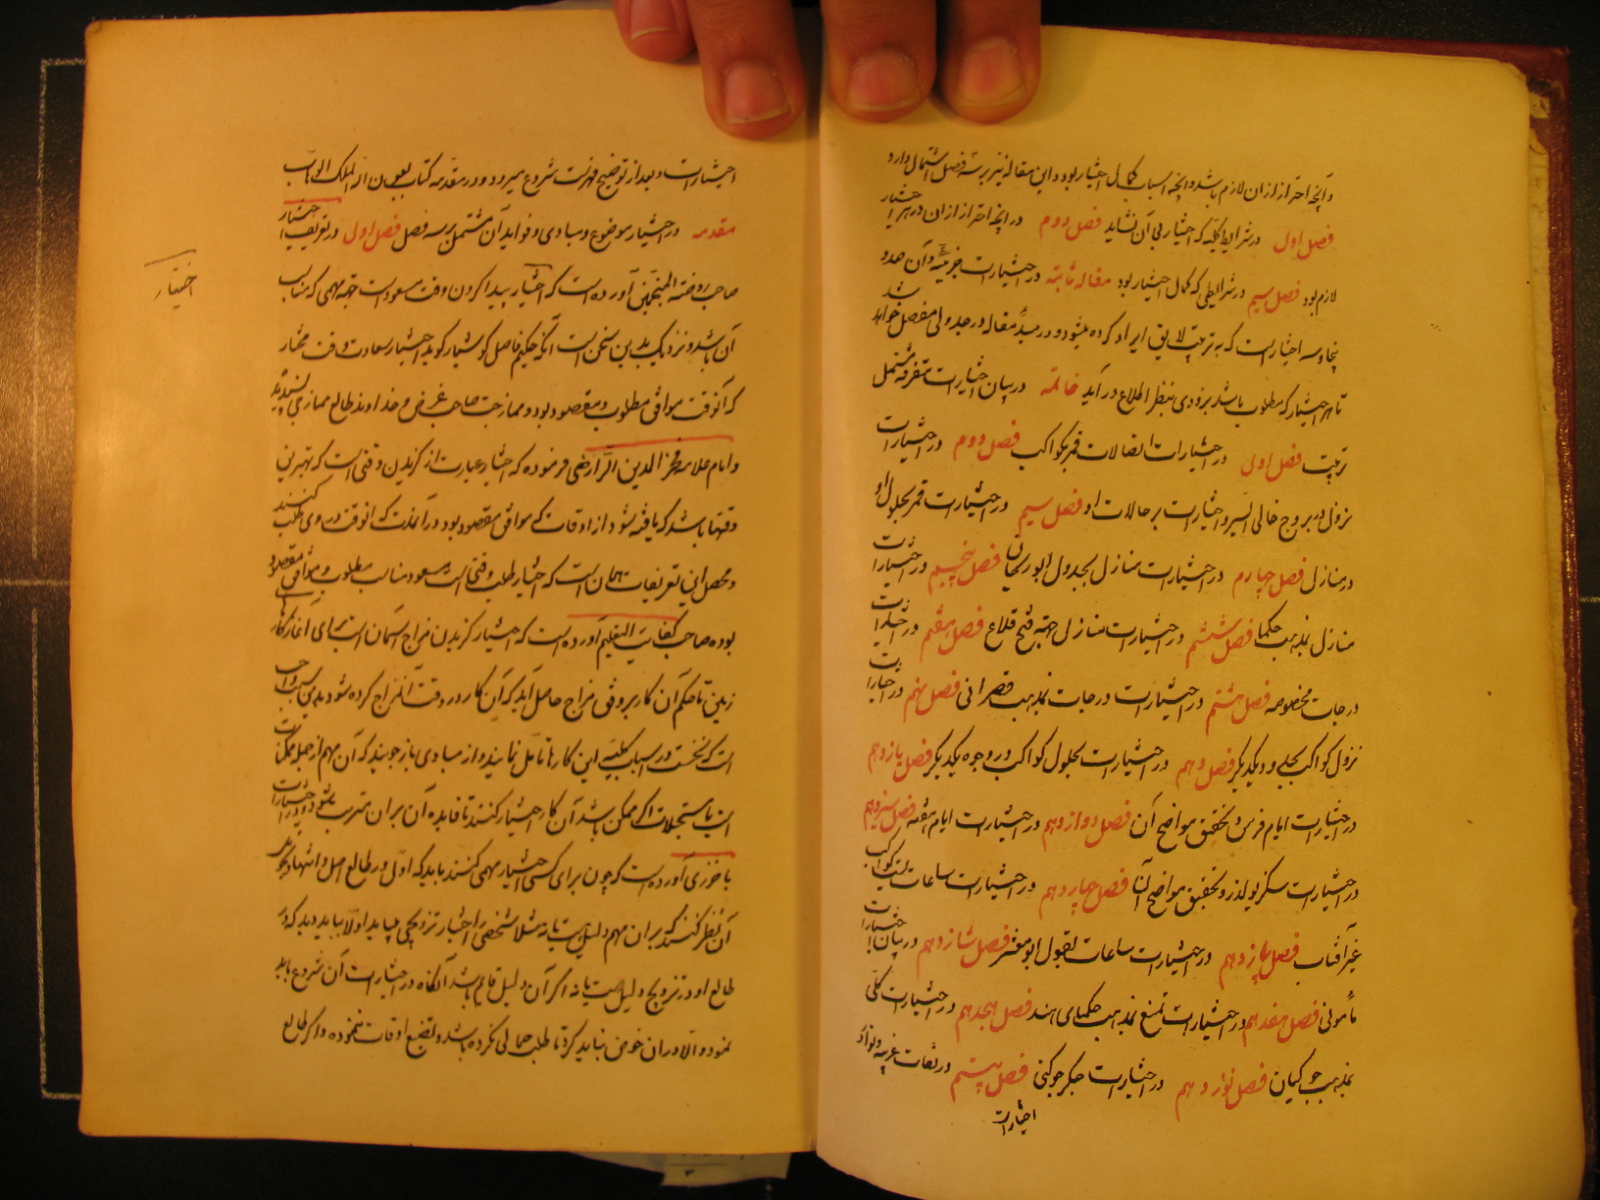 و آنچه احتراز ازان لازم باشد و آنچه اسباب کمال اختیار بود و این مقاله نیز بر سه فصل اشتمال دارد
فصل اول در شرایط کلیه که اختیار بی آن نشاید فصل دوم در آنچه احتراز ازان در هر اختیار
لازم بود فصل سیم در شرایطی که کمال اختیار بود مقاله ثانیه در اختیارات جزئیه و آن صد و
پنجاه و سه اختیار است که به ترتیب لایق ایراد کرده میشود و در مبدأ مقاله در جدولی مفصل خواهد شد
تا هر اختیار که مطلوب باشد بزودی بنظر اطلاع در آید خاتمه در بیان اختیارات متفرقه مشتمل
فصل اول در اختیارات اتصالات قمر بکواکب فصل دوم در اختیارات
نزول در بروج خالی السیر و اختیارات بر حالات او فصل سیم در اختیارات قمر بحلول او
در منازل فصل چهارم در اختیارات منازل بجدول ابوریحان فصل پنجم در اختیارات
منازل بمذهب حکما فصل ششم در اختیارات منازل جهة فتح قلاع فصل هفتم در اختیارات
درجات مخصوصه فصل هشتم در اختیارات درجات بمذهب قصرانی فصل نهم در اختیارات
نزول کواکب یکدیگر فصل دهم در اختیارات بحلول کواکب در وجوه یکدیگر فصل یازدهم
در اختیارات ایام فرس و تحقیق مواضح آن فصل دوازدهم در اختیارات ایام هفته فصل سیزدهم
در اختیارات سکز یولدز و تحقیق مواضح آن فصل چهاردهم در اختیارات ساعات کواکب
غیر آفتاب فصل پانزدهم در اختیارات ساعات بقول ابومعشر فصل شانزدهم در بیان اختیارات
مأمونی فصل هفدهم در اختیارات تمنع بمذهب حکمای هند فصل هجدهم در اختیارات کلی
بمذهب جوکیان فصل نوزدهم در اختیارات جکر جوکنی فصل بیستم در نکات غریبه و نوادر
اختیارات
اختیارات و بعد از توضیح فهرست شروع میرود در مقدمه کتاب بعون اله الملک الوهاب
مقدمه در اختیار موضوع و مبادی و فواید آن مشتمل بر سه فصل فصل اول در تعریف اختیار
صاحب روضة المنجمین آورده است که اختیار پیدا کردن وقت مسعود است جهة مهمی که مناسب
آن باشد و نزدیک بدین سخن است آنکه حکیم فاضل کوشیار کوید اختیار سعادت وقت مختار
که آنوقت موافق مطلوب و مقصود بود و ممازجت صاحب غرض و خداوند طالع ممازجی پسندیده
و امام علامه فخر الدین الرازی فرموده که اختیار عبارت از کزیدن وقتی است که بهترین
وقتها باشد که یافته شود از اوقات که موافق مقصود بود در آن مدت که آنوقت در وی طلب کنند
و محصل این تعریفات همان است که اختیار طلب وقتی است مسعود مناسب مطلوب و موافق مقصود
بوده صاحب کفایت التعلیم آورده است که اختیار کزیدن مزاج آسمان است برای آغاز کار
زمین تا حکم آن کار بر وفق مزاج حاصل آید که آن کار در وقت آن مزاج کرده شود بدین سبب واجب
است که نخست در اسباب کلیه این کارها تامل نمایند و از مبادی باز جویند که آن مهم از جمله ممکنات
است یا مستحیلات اگر ممکن باشد آن کار اختیار کنند تا فایده آن بر آن مترتب شود و در اختیارات
باخرزی آورده است که چون برای کسی اختیار مهمی کنند باید که اولی در طالع اصل و
آن نظر کنند که بر آن مهم دلیل هست یا نه مثلا شخصی را اختیار تزویجی میباید اولا باید دید که در
طالع او در تزویج دلیل هست یا نه اکر آن دلیل قایم باشد آنکاه در اختیارات آن شروع باید
نمود و الا در آن خوض نباید کرد تا طلب محالی نکرده باشد و تضیع اوقات ننموده و اکر طالع
اختیار